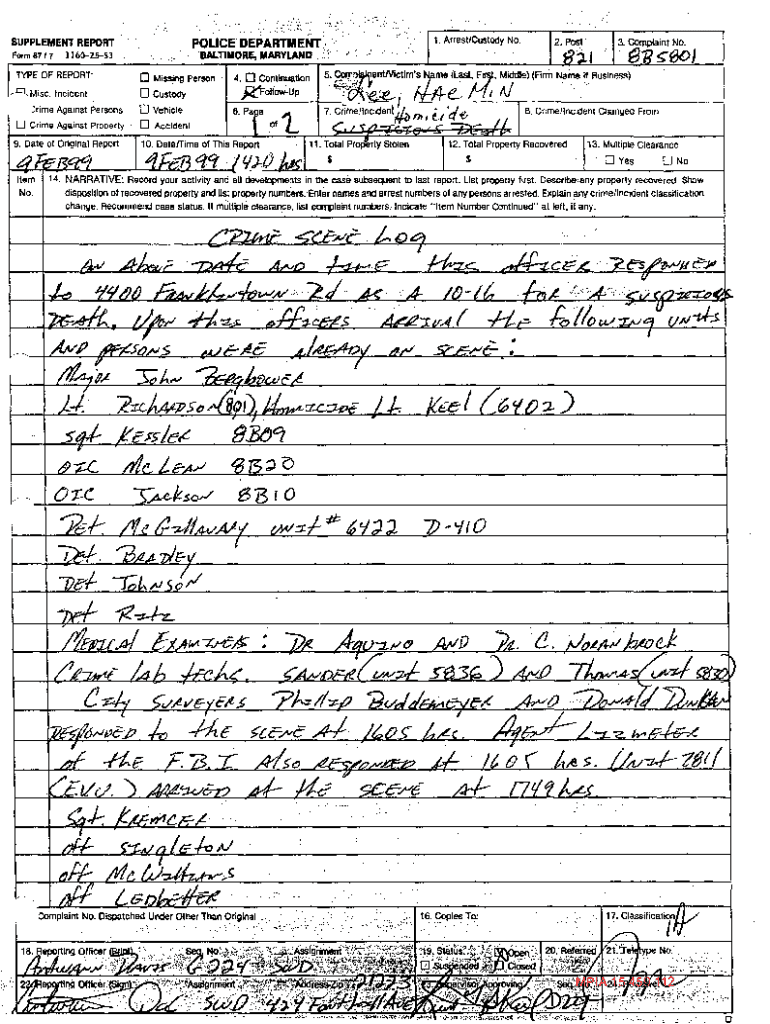 SUPPLEMENT REPORT
Form 87/7 1160-25-53
POLICE DEPARTMENT
BALTIMORE, MARYLAND
1. Arrest/Custody No.
2. Post
821
3. Complaint No.
8B5801
TYPE OF REPORT:
Misc. Incident
Crime Against Persons
Crime Against Property
Missing Person
Custody
Vehicle
Accident
4. Continuation
Follow-Up
5. Complainant/Victim's Name (Last, First, Middle) (Firm Name if Business)
Lee, HAE MIN
6. Page
1 of 2
7. Crime/Incident
Homicide
Suspicious Death
8. Crime/Incident Changed From
9. Date of Original Report
9FEB99
10. Date/Time of This Report
9FEB99 1420 hrs
11. Total Property Stolen
$
12. Total Property Recovered
$
13. Multiple Clearance
Yes No
Item No.
14. NARRATIVE: Record your activity and all developments in the case subsequent to last report. List property first. Describe any property recovered. Show
disposition of recovered property and list property numbers. Enter names and arrest numbers of any persons arrested. Explain any crime/incident classification
change. Recommend case status. If multiple clearance, list complaint numbers. Indicate "Item Number Continued" at left, if any.
CRIME SCENE LOG
ON Above DATE AND time this officer RESPONDED
to 4400 Franklintown Rd AS A 10-16 for A suspicious
DEATH. Upon this officers ARRIVAL the following units
AND persons WERE already on scene:
Major John Bergbower
Lt. Richardson (801), Homicide Lt. Keel (6402)
Sgt Kessler 8B09
OIC McLean 8B20
OIC Jackson 8B10
Det. McGillavary unit # 6422 D-410
Det. Bradley
Det Johnson
Det Ritz
Medical Examiners: Dr Aquino AND Dr. C. Noranbrock
Crime lab techs. SANDER (unit 5836) AND Thomas (unit 5830)
City Surveyers Phillip Buddemeyer AND Donald
RESPONDED to the SCENE At 1605 hrs. Agent Lizmeter
of the F.B.I Also RESPONDED At 1605 hrs. Unit 7811
(E.V.U.) ARRIVED at the SCENE at 1749 hrs
Sgt. Kremcer
off Singleton
off McWilliams
off Ledbetter
Complaint No. Dispatched Under Other Than Original
16. Copies To:
17. Classification
1A
18. Reporting Officer (Print) Seq. No. Assignment
Antwann Davis G224 SWD
19. Status
Open
Suspended Closed
20. Referred
21. Teletype No.
22. Reporting Officer (Sign) Assignment Address-Zip 21223
SWD 424 Font hill Ave
Supervisor Approving Seq.